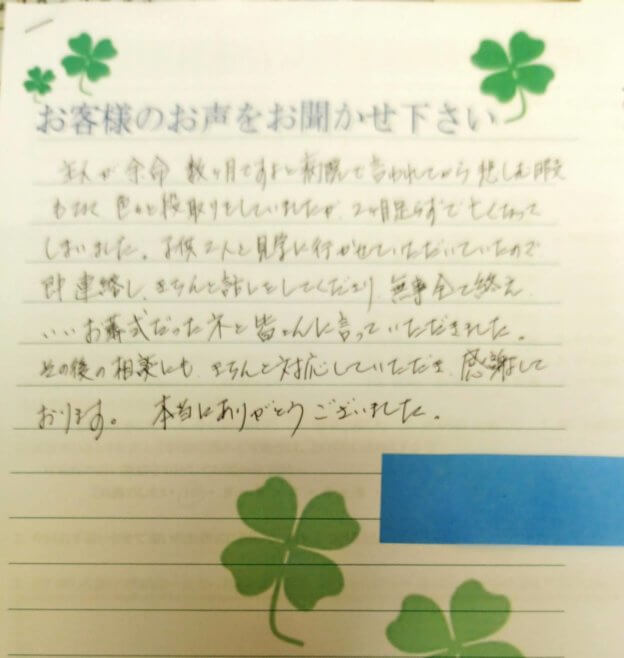 お客様のお声をお聞かせ下さい
主人が余命数ヶ月ですよと病院で言われてから悲しむ暇
もなく色々と段取りをしていましたが、2ヶ月足らずで亡くなって
しまいました。子供2人と見学に行かせていただいていたので
即連絡し、きちんと話しをしてくださり、無事全て終え、
いいお葬式だったネと皆さんに言っていただきました。
その後の相談にも、きちんと対応していただき、感謝して
おります。 本当にありがとうございました。